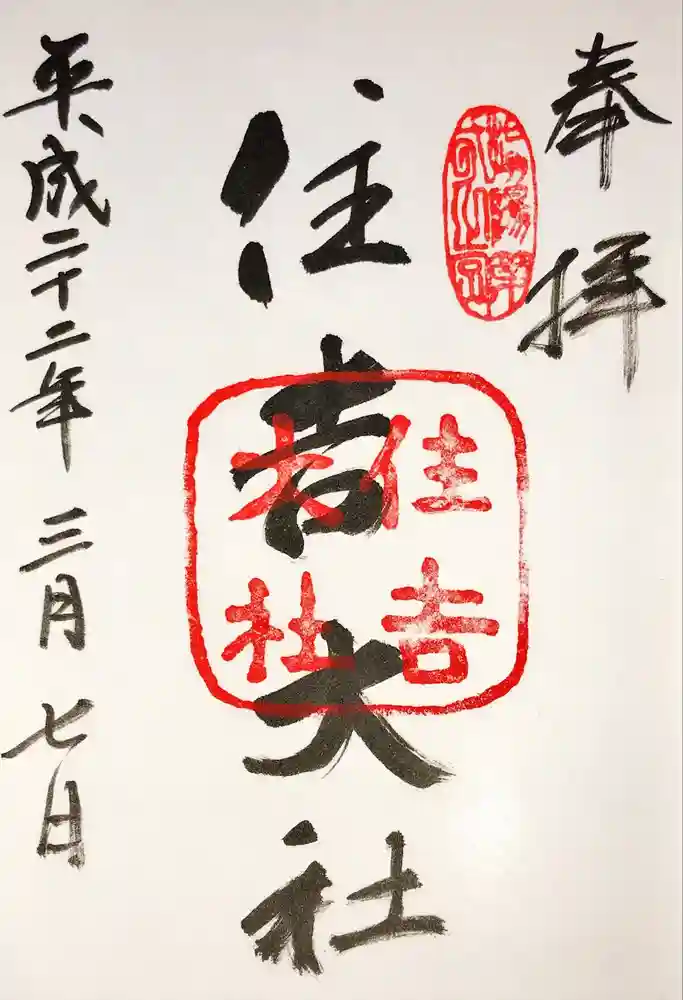 奉拝
住吉大社
住吉
大社
平成二十二年 三月 七日